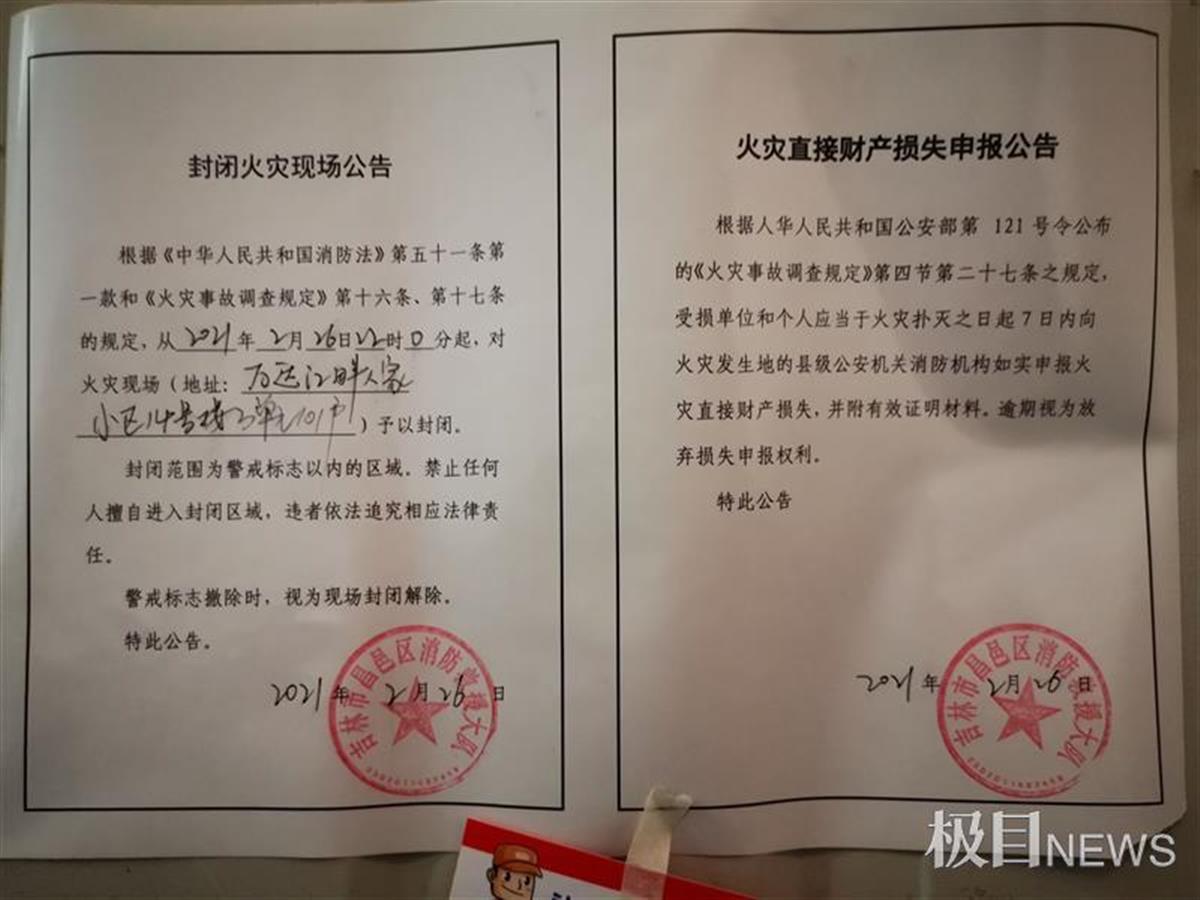 封闭火灾现场公告
根据《中华人民共和国消防法》第五十一条第
一款和《火灾事故调查规定》第十六条、第十七条
的规定,从2021年2月26日22时0分起,对
火灾现场(地址:万达江畔人家
小区14号楼3单元101户)予以封闭。
封闭范围为警戒标志以内的区域。禁止任何
人擅自进入封闭区域,违者依法追究相应法律责
任。
警戒标志撤除时,视为现场封闭解除。
特此公告。
2021年2月26日
吉林市昌邑区消防救援大队
火灾直接财产损失申报公告
根据人华人民共和国公安部第 121 号令公布
的《火灾事故调查规定》第四节第二十七条之规定,
受损单位和个人应当于火灾扑灭之日起7日内向
火灾发生地的县级公安机关消防机构如实申报火
灾直接财产损失,并附有效证明材料。逾期视为放
弃损失申报权利。
特此公告
2021年2月26日
吉林市昌邑区消防救援大队
极目NEWS